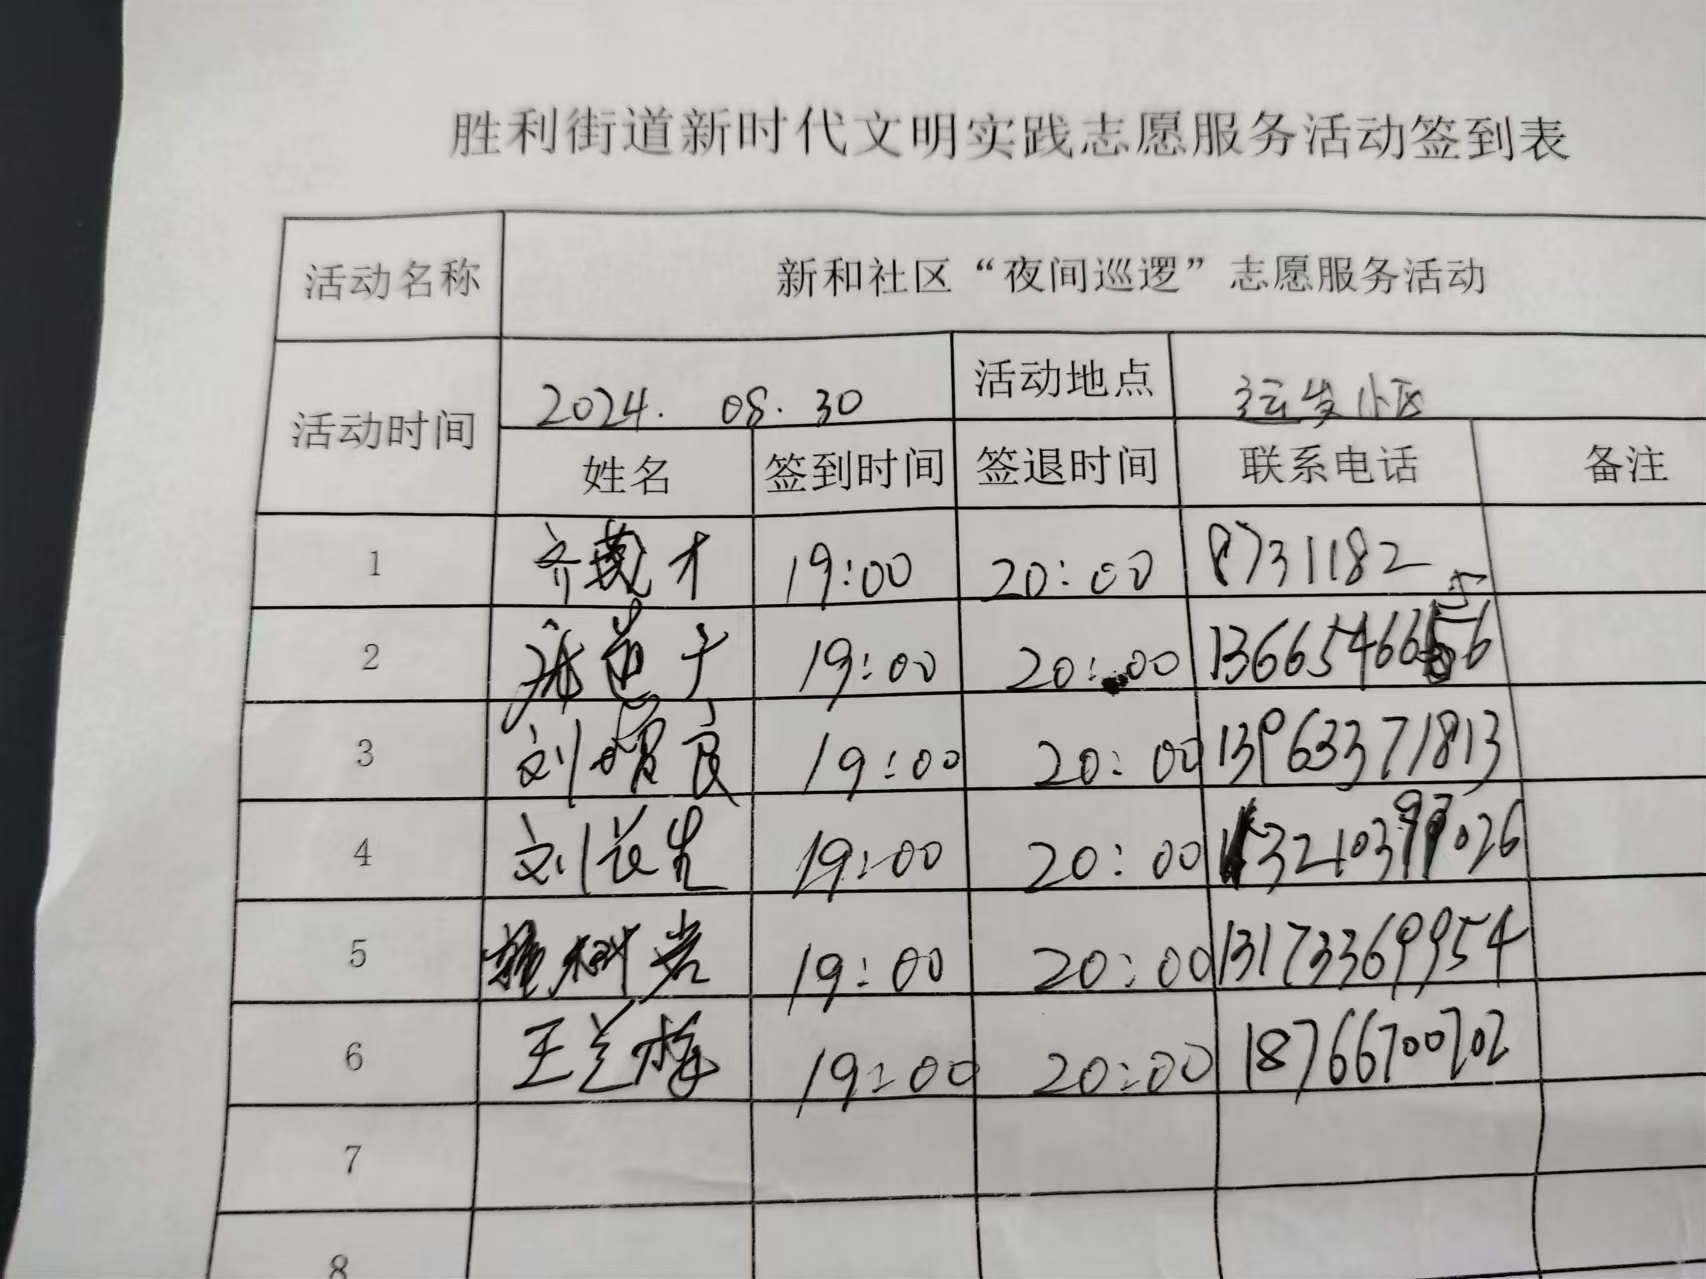 胜利街道新时代文明实践志愿服务活动签到表
活动名称 新和社区“夜间巡逻”志愿服务活动
活动时间 2024. 08. 30 活动地点 运发小区
姓名 签到时间 签退时间 联系电话 备注
1 齐茂才 19:00 20:00 8731182
2 19:00 20:00
3 刘 良 19:00 20:00 13963371813
4 刘长生 19:00 20:00
5 树岩 19:00 20:00 13173369954
6 王兰梅 19:00 20:00 18766700702
7
8